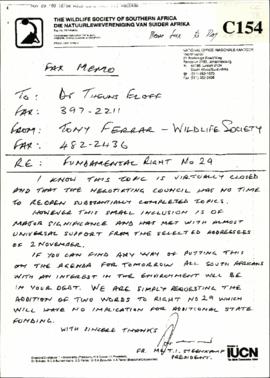 THE WILDLIFE SOCIETY OF SOUTHERN AFRICA
DIE NATUURLEWEVERENIGING VAN SUIDER AFRIKA
C154
NATIONAL OFFICE
FAX MEMO
TO: Dr THEUNS ELOFF
FAX: 397-2211
FROM: TONY FERRAR - WILDLIFE SOCIETY
FAX: 482-2436
RE: FUNDAMENTAL RIGHT NO 29
I KNOW THIS TOPIC IS VIRTUALLY CLOSED
AND THAT THE NEGOTIATING COUNCIL HAS NO TIME
TO REOPEN SUBSTANTIALLY COMPLETED TOPICS.
HOWEVER THIS SMALL INCLUSION IS OF
MAJOR SIGNIFICANCE AND HAS MET WITH ALMOST
UNIVERSAL SUPPORT FROM THE SELECTED ADDRESSEES
OF 2 NOVEMBER.
IF YOU CAN FIND ANY WAY OF PUTTING THIS
ON THE AGENDA FOR TOMORROW ALL SOUTH AFRICANS
WITH AN INTEREST IN THE ENVIRONMENT WILL BE
IN YOUR DEBT. WE ARE SIMPLY REQUESTING THE
ADDITION OF TWO WORDS TO RIGHT NO 29 WHICH
WILL HAVE NO IMPLICATION FOR ADDITIONAL STATE
FUNDING.
WITH SINCERE THANKS
T.I. STEENKAMP
PRESIDENT.
IUCN